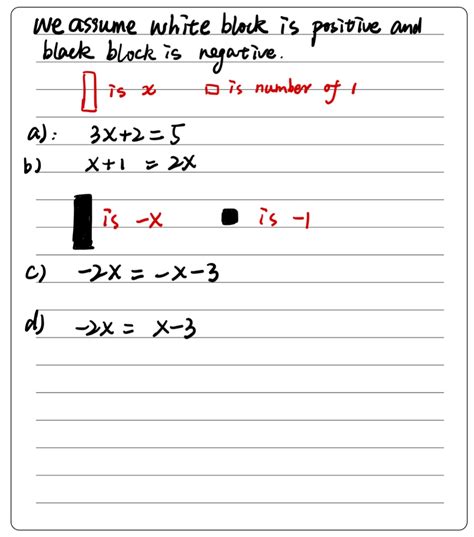 We assume white block is positive and
black block is negative.
is x is number of 1
a): 3x+2=5
b) x+1 = 2x
is -x is -1
c) -2x = -x-3
d) -2x = x-3